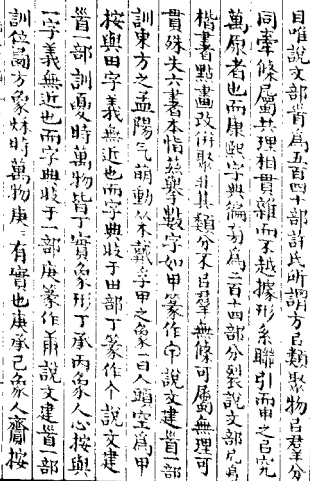 目唯說文部𩠐爲五百四十部許氏所謂方㠯類聚物㠯羣分
同牽條屬共理相貫雜而不越據形系聯引而申之㠯究
萬原者也而康熙字典徧旁爲二百十四部分裂說文部尻爲
楷書點畫改倂聚非其類分不㠯羣無條可屬無理可
貫殊失六書本恉茲擧數字如甲篆作𠇚說文建𩠐部
訓東方之孟陽气萌動从木戴孚甲之象一曰人頭空爲甲
按與田字義無近也而字典收于田部丁篆作个說文建
𩠐一部訓夏時萬物皆丁實象形丁承丙象人心按與
一字義無近也而字典收于一部庚篆作𢆉說文建𩠐一部
訓位圅方象秌時萬物庚庚有實也庚承己象人齎按